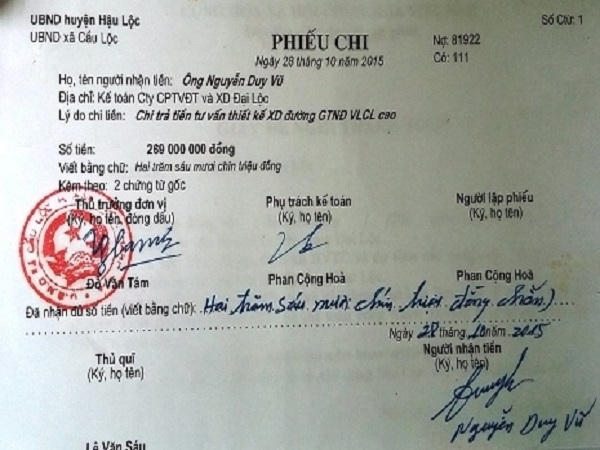 UBND huyện Hậu Lộc
Số Ctừ: 1
UBND xã Cầu Lộc
PHIẾU CHI
Nợ: 81922
Ngày 28 tháng 10 năm 2015
Có: 111
Họ, tên người nhận tiền: Ông Nguyễn Duy Vũ
Địa chỉ: Kế toán Cty CPTVĐT và XD Đại Lộc
Lý do chi tiền: Chi trả tiền tư vấn thiết kế XD đường GTNĐ VLCL cao
Số tiền: 269 000 000 đồng
Viết bằng chữ: Hai trăm sáu mươi chín triệu đồng
Kèm theo: 2 chứng từ gốc
Thủ trưởng đơn vị
(Ký, họ tên, đóng dấu)
Phụ trách kế toán
(Ký, họ tên)
Người lập phiếu
(Ký, họ tên)
Đỗ Văn Tâm
Phan Cộng Hoà
Phan Cộng Hoà
Đã nhận đủ số tiền (viết bằng chữ): Hai trăm sáu mươi chín triệu đồng chẵn)
Ngày 28 tháng 10 2015
Thủ quĩ
(Ký, họ tên)
Người nhận tiền
(Ký, họ tên)
Nguyễn Duy Vũ
Lê Văn Sáu